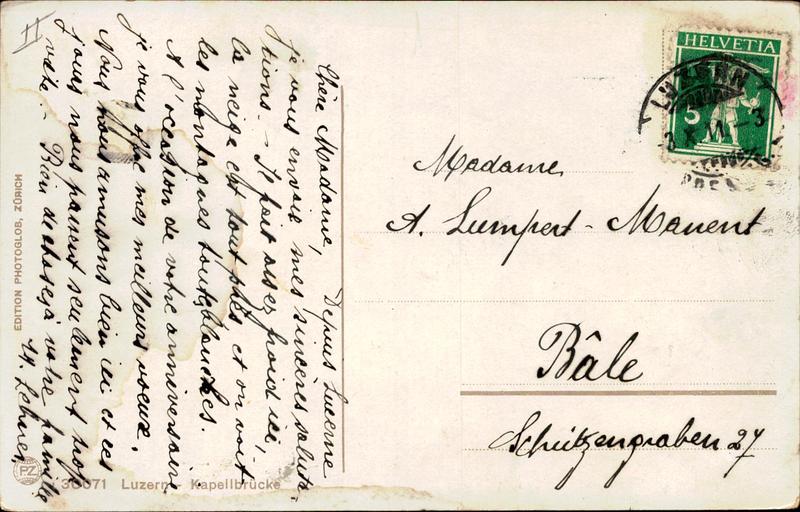 II
Chère Madame, Depuis Lucerne
je vous envoie mes sincères saluta-
tions. - Il fait assez froid ici,
la neige est tout près et on voit
les montagnes toutes blanches.
A l'occasion de votre anniversaire
je vous offre mes meilleurs voeux.
Nous nous amusons bien ici et ces
jours nous passent seulement trop
vite. - Bien de choses à votre famille
EDITION PHOTOGLOB, ZÜRICH
PZ
Luzern - Kapellbrücke
HELVETIA
5
LUZERN
Madame
A. Lumpert-Manent
Bâle
Schützengraben 27